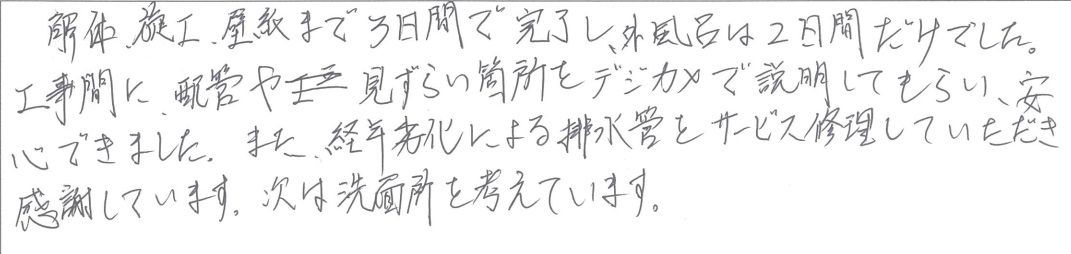 解体、施工、壁紙まで3日間で完了し、外風呂は2日間だけでした。
工事間に、配管や見ずらい箇所をデジカメで説明してもらい、安
心できました。また、経年劣化による排水管をサービス修理していただき
感謝しています。次は洗面所を考えています。